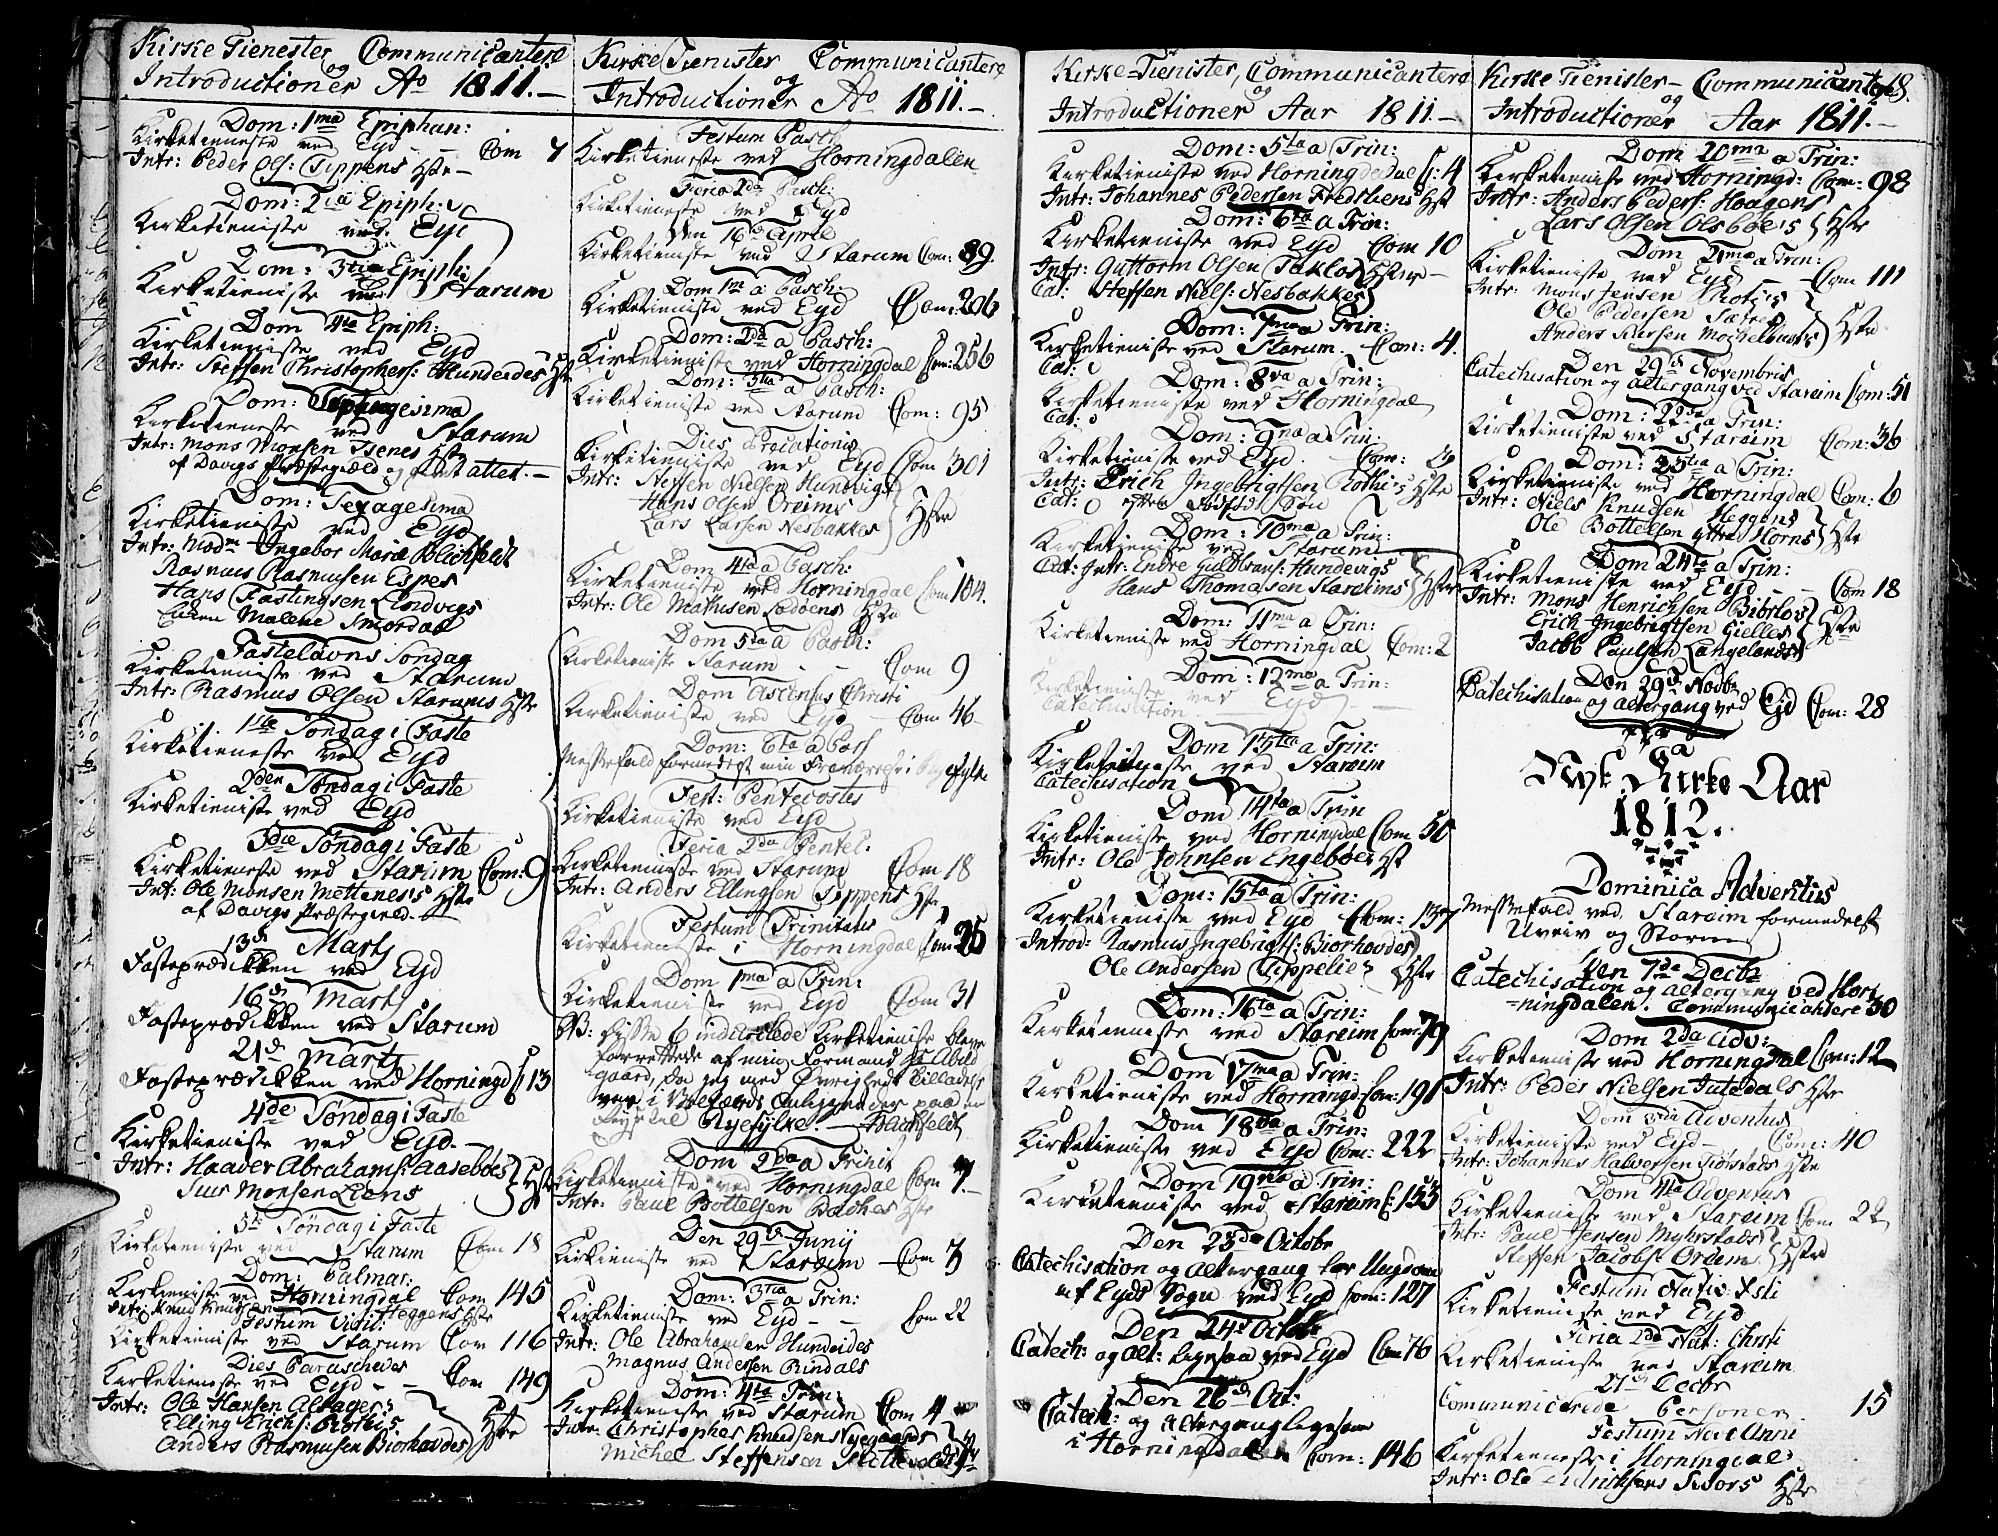 Kirke Tienester Communicantere
og
Introductioner Ao 1811.-
Dom: 1ma Epiphan:
Kirketieneste ved Eyd - - Com 7
Intr: Peder Ols: Tippens Hste-
Dom: 2da Epiph:
Kirketieniste ved Eyd
Dom: 3tia Epiph:
Kirketieniste ved Starum
Dom 4ta Epiph:
Kirketieniste ved Eyd
Intr: Steffen Christophers: Hundeides Hste
Dom: Septuagesima
Kirketieneste ved Starum
Intr: Mons Monsen Isenes Hste
af Davigs Præstegield og attest.-
Dom: Sexagesima
Kirketieniste ved Eyd
Intr: Madm Ingebor Marie Blichfeldt
Rasmus Rasmusen Espes
Hans Fastingsen Lindvigs
Malene Smordal
Fastelavns Søndag
Kirketieneste ved Starum
Intr: Rasmus Olsen Starums Hste
1ste Søndag i Faste
Kirketieneste ved Eyd
2den Søndag i Faste
Kirketieniste ved Eyd
3die Søndag i Faste
Kirketieneste ved Starum Com: 9
Int: Ole Monsen Mettenes Hste
af Davigs Præstegield.
13d Marts
Fasteprædikken ved Eyd
16d Marts
Fasteprædikken ved Starum
21d Marts
Fasteprædikken ved Horningd C 13
4de Søndag i Faste
Kirketieniste ved Eyd.-
Intr: Haader Abrahams: Aasebøes Hste
Siur Monsen Liens
5te Søndag i Faste
Kirketieniste ved Starum Com 18
Dom: Palmar:
Kirketieniste ved Horningdal Com 145
Intr: Knud Knudsen Heggens Hste
Festum Viridi:
Kirketieniste ved Starum Com 116
Dies Parascheves
Kirketieneste ved Eyd - - Com 149
Intr: Ole Hansen Aldagers
Elling Erichs: Rothis Hste
Anders Rasmusen Biorhovdes
Kirke Tienister Communicantere
og
Introductioner Ao 1811.-
Festum Pasch
Kirketieneste ved Horningdalen
Feria 2da Pasch:
Kirketieneste ved Eyd
Den 16d April
Kirketieneste ved Starum Com: 89.
Dom 1ma Pasch:
Kirketieniste ved Eyd Com: 206
Dom: 2da a Pasch:
Kirketieniste ved Horningdal Com: 256
Dom: 3tia a Pasch:
Kirketieniste ved Starum Com: 95
Dies Precationis
Kirketieneste ved Eyd Com 301
Intr: Steffen Nielsen Hundvigs
Hans Olsen Oreims Hste
Lars Larsen Nesbakkes
Dom 4ta a Pasch:
Kirketieneste ved Horningdal Com 104.
Intr: Ole Mathisen Lødøens Hste
Dom 5da a Pasch:
Kirketieniste Starum - - Com 9
Dom Ascensus Christi
Kirketieneste ved Eyd - Com 46-
Dom: 6ta a Pasch
Messefald formedelst min Fraværelse i Ryefylke
Fest: Pentecostes
Kirketieneste ved Eyd
Feria 2da Pentec:
Kirketieniste ved Starum Com 18
Intr: Anders Ellingsen Tippens Hste
Festum Trinitatis
Kirketieneste i Horningdal Com 25
Dom 1ma a Trin:
Kirketieniste ved Eyd Com 31
NB: Disse 6 indcirclede Kirketieniste bleve
forrettede af min Formand Hr Abild
gaard, da jeg med Øvrigheds Tilladelse
var i Velfærds Anliggender paa en
Reyse til Ryefylke. Blichfeldt
Dom 2da a Trinit
Kirketieniste ved Horningdal Com 7.-
Intr: Paul Bottelsen Bachas Hste
Den 29d Junij
Kirketieniste ved Starum - Com 3
Dom: 3tia a Trin:
Kirketieniste ved Eyd - - Com 22
Intr: Ole Abrahamsen Hundeides
Magnus Andersen Rindals
Dom: 4ta Trin:
Kirketieniste ved Starum Com 4
Intr: Christopher Knudsen Nyegaards
Michel Steffensen
Kirke-Tienister, Communicantere
og
Introductioner Aar 1811.-
Dom: 5ta a Trin:
Kirketieniste ved Horningdal C: 4
Intr: Johannes Pedersen Fredsbiens Hst
Dom: 6ta a Trin:
Kirketieniste ved Eyd Com 10
Intr: Guttorm Olsen Taklos Hstrue-
Cat: Steffen Niels: Nesbakkes
Dom: 7ma a Trin:
Kirketieniste ved Starum. Com: 4.
Cat:
Dom: 8va a Trin:
Kirketieniste ved Horningdal
Cat:
Dom: 9na a Trin:
Kirketieniste ved Eyd. Com: 3
Intr: Erich Ingebrigtsen Rothis Hste
Cat:
Dom: 10ma a Trin:
Kirketieniste ved Starum
Cat: Intr: Endre Guldbrans: Hundevigs
Hans Thomasen Starums Hste
Dom: 11ma a Trin:
Kirketieniste ved Horningdal Com: 2
Dom: 12ma a Trin:
Kirketieniste ved Eyd
Catechisation
Dom 13tia a Trin:
Kirketieneste ved Starum
Catechisation
Dom 14ta a Trin
Kirketieniste ved Horningdal Com 50
Intr: Ole Johnsen Engebøes Hst
Dom: 15ta a Trin:
Kirketieniste ved Eyd Com: 137
Introd: Rasmus Ingebrigts: Biorhovdes
Ole Andersen Tippelies Hste
Dom: 16ta a Trin:
Kirketieniste ved Starum Com: 79
Dom 17ma a Trin:
Kirketieniste ved Horningd: Com: 191
Dom 18va a Trin:
Kirketieniste ved Eyd Com: 222
Dom 19na a Trin:
Kirketieniste ved Starum C: 153
Den 23de Octobr
Catechisation og Altergang for Ungdom
af Eyds Sogn ved Eyd Com: 127
Den 24d Octobr
Catech: og Alt: ligesaa ved Eyd Com 76
Den 26d Oct:
Catech: og Altergang ligesaa
i Horningdalen Com: 146
Kirke Tienister - Communicantere 18.
og
Introductioner Aar 1811.-
Dom 20ma a Trin:
Kirketieniste ved Horningd: Com: 98
Intr: Anders Peders: Haagens
Lars Olsen Olsbøes Hste
Dom 21ma a Trin:
Kirketieniste ved Eyd - Com 111
Intr: Mons Jensen Rotis
Ole Pedersen Sætre
Anders Larsen Hste
Den 29d Novembris
Catechisation og Altergang ved Starum Com: 51
Dom: 22da a Trin:
Kirketieniste ved Starum Com: 36
Dom: 23tia a Trin:
Kirketieniste ved Horningdal Com: 6
Intr: Niels Knudsen Heggens
Ole Bottelsen Yttre Horns Hste
Dom 24ta a Trin:
Kirketieniste ved Eyd - Com 18
Intr: Mons Henrichsen Biørlos
Erich Ingebrigtsen Gielles Hste
Jacob Paulsen Langelands
Den 29d Novbr
Catechisation og Altergang ved Ejd Com: 28
Nyt Kirke Aar
1812.
Dominica Adventus
Messefald ved Starum formedelst
Uveir og Storm
Den 7da Decbr
Catechisation og Altergang ved Hor
=ningdalen. Communicantere 30
Dom 2da Adv:
Kirketieniste ved Horningdal Com: 12
Intr: Peder Nielsen Indredals Hste
Dom 3tia Adventus
Kirketieniste ved Eyd - Com: 40
Intr: Johannes Halversen Torstads Hste
Dom 4ta Adventus
Kirketieniste ved Starum Com 22
Intr: Paul Jensen Myhrstads
Steffen Jacobs: Oreims Hste
Festum Nativ: Xsti
Kirketieniste ved Eyd
Feria 2da Nat: Christi
Kirketieniste ved Starum
27d Decbr
Communicerede Personer 15
Festum Novi Anni
Kirketieneste i Horningdal
Intr: Ole Hste